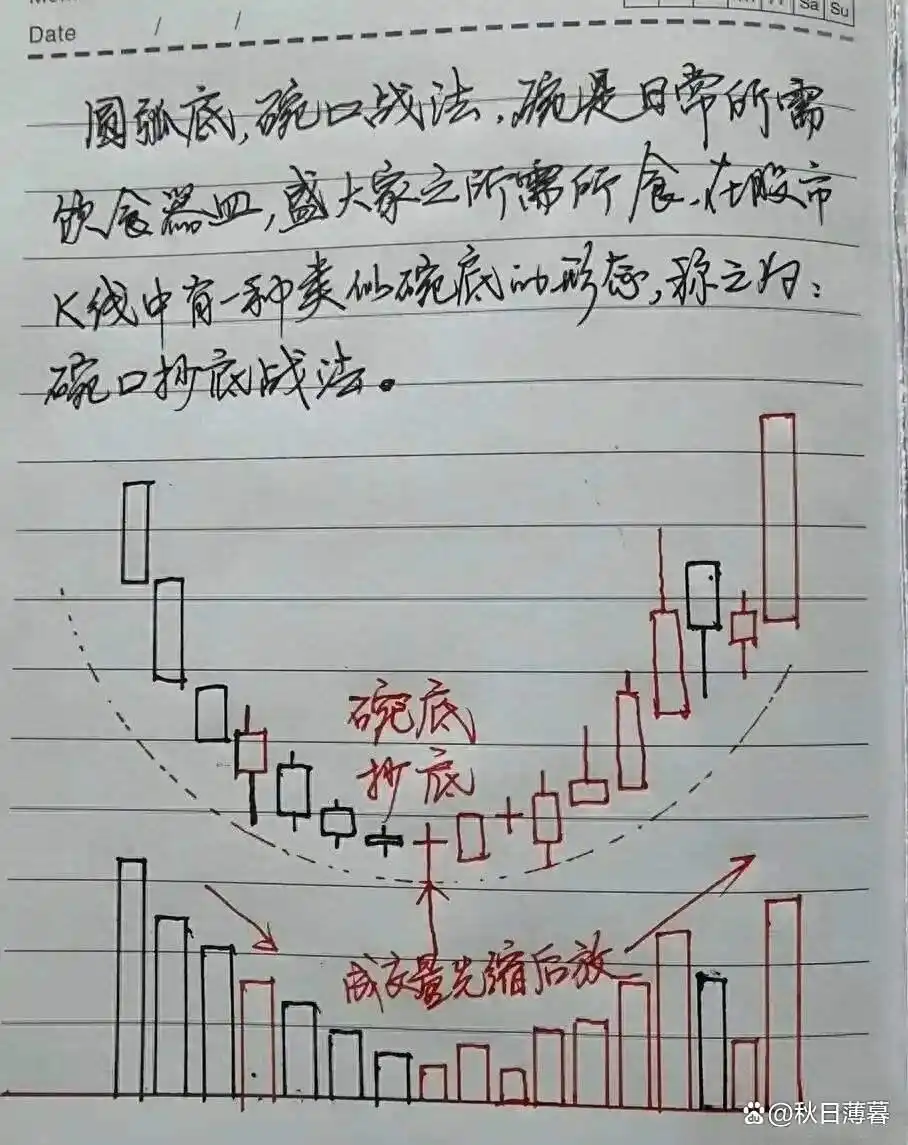 Date / /
Sa Su
圆弧底,碗口战法,碗是日常所需
饮食器皿,盛大家之所需所食,在股市
K线中有一种类似碗底的形态,称之为:
碗口抄底战法。
碗底
抄底
成交量先缩后放
@秋日薄暮